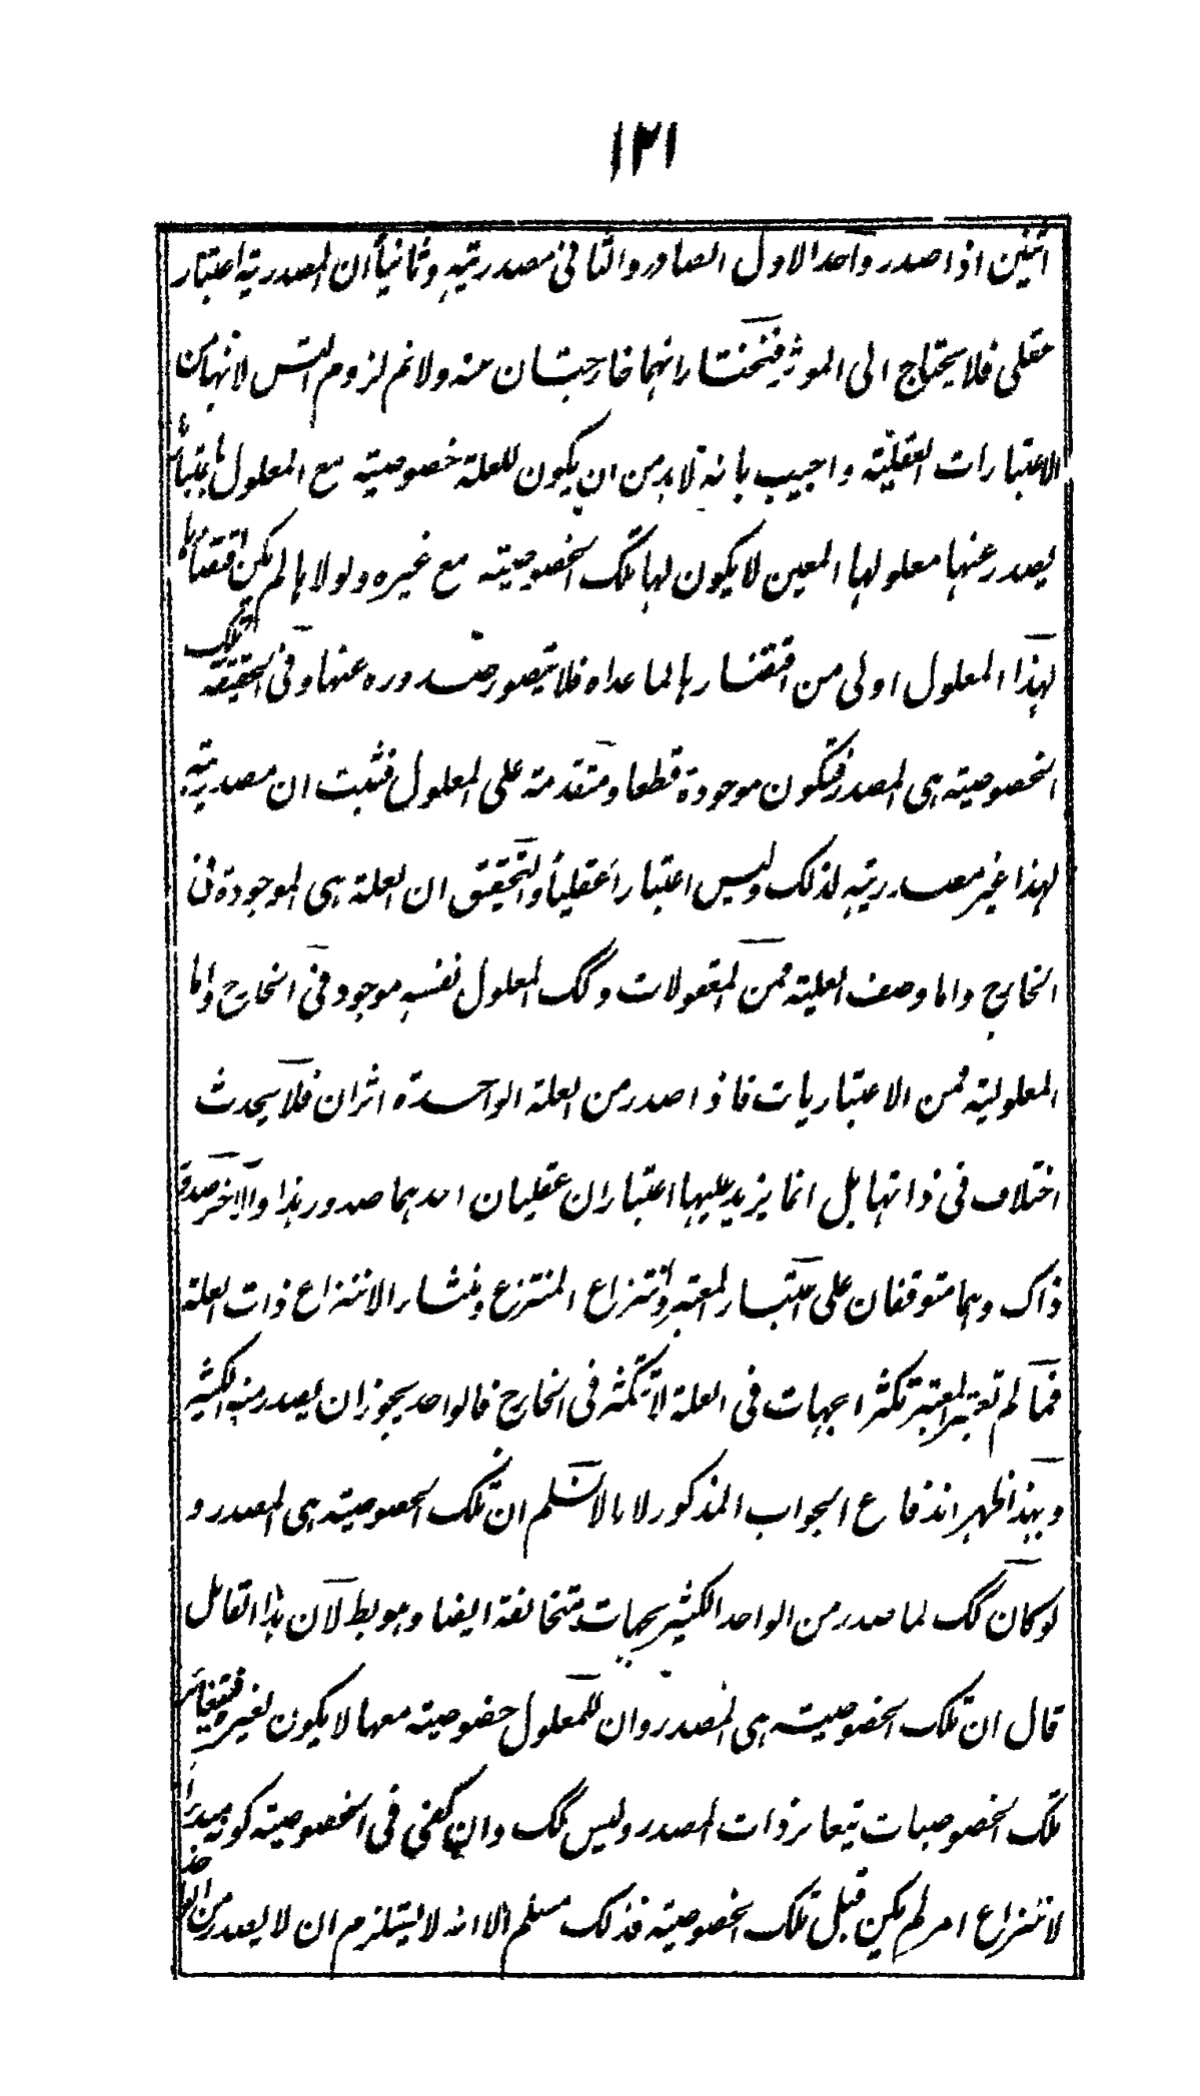 ١٢١
اثنين اذا صدر واحد الاول الصادر والثانى مصدريته وثانيا ان المصدرية اعتبار
عقلى فلا يحتاج الى الموثر فنختار انهما خارجتان عنه ولا نم لزوم التس لانها من
الاعتبارات العقلية واجيب بانه لا بد من ان يكون للعلة خصوصية مع المعلول باعتبارها
يصدر عنها معلولها المعين لا يكون لها تلك الخصوصية مع غيره ولولاها لم يكن اقتضاءها
لهذا المعلول اولى من اقتضارها لما عداه فلا يتصور صدوره عنها وفى الحقيقة تلك
الخصوصية هى المصدر فتكون موجودة قطعا ومتقدمة على المعلول فثبت ان مصدريته
لهذا غير مصدريته لذلك وليس اعتبارا عقليا والتحقيق ان العلة هى الموجودة فى
الخارج واما وصف العلية فمن المعقولات وكك المعلول نفسه موجود فى الخارج واما
المعلولية فمن الاعتباريات فاذا صدر من العلة الواحدة اثران فلا يحدث
اختلاف فى ذاتها بل انما يزيد عليها اعتباران عقليان احدهما صدور هذا والاخر صدور
ذاك وهما متوقفان على اعتبار المعتبر وانتزاع المنتزع ومنشار الانتزاع ذات العلة
فما لم تعتبر المعتبر تكثر اجهات فى العلة لا تتكثر فى الخارج فالواحد يجوز ان يصدر منه الكثير
وبهذا ظهر اندفاع الجواب المذكور لانا لا نسلم ان تلك الخصوصية هى المصدر و
لو كان كك لما صدر من الواحد الكثير بجهات متخالفة ايضا وهو بط لان هذا القائل
قال ان تلك الخصوصية هى المصدر وان للمعلول خصوصية معها لا يكون لغيره فبتغاير
تلك الخصوصيات يتغاير ذات المصدر وليس كك وان كفى فى الخصوصية كونه مبدرا
لانتزاع امر لم يكن قبل تلك الخصوصية فذلك مسلم الا انه لا يستلزم ان لا يصدر من